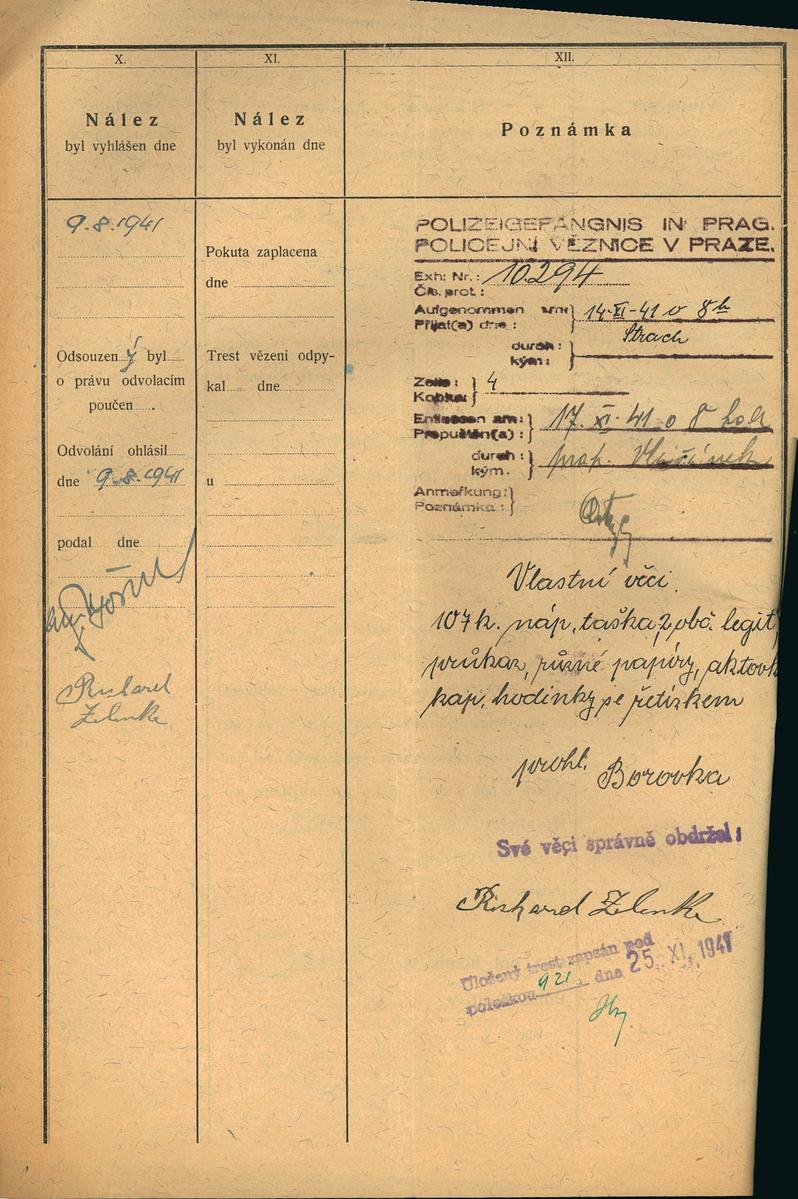 X.
Nález
byl vyhlášen dne
9.8.1941
Odsouzen ý byl
o právu odvolacím
poučen
Odvolání ohlásil
dne 9.8.1941
podal dne
Richard
Zelenka
XI.
Nález
byl vykonán dne
Pokuta zaplacena
dne
Trest vězení odpy-
kal dne
u
XII.
Poznámka
POLIZEIGEFÄNGNIS IN PRAG.
POLICEJNÍ VĚZNICE V PRAZE.
Exh: Nr.: 10.294
Čís. prot.:
Aufgenommen am: 14-XI-41 o 8h
Přijat(a) dne:
durch: Strach
kým:
Zelle: 4
Kobka:
Entlassen am: 17. XI. 41 o 8 hod
Propuštěn(a):
durch: prap.
kým.
Anmerkung:
Poznámka:
Vlastní věci.
107 k. náp. taška, 2 obč. legit,
průkaz, různé papíry, aktovk
kap. hodinky se řetízkem
prohl. Borovka
Své věci správně obdržel:
Richard Zelenka
Uložený trest zapsán pod
položkou 921 dne 25. XI. 1941